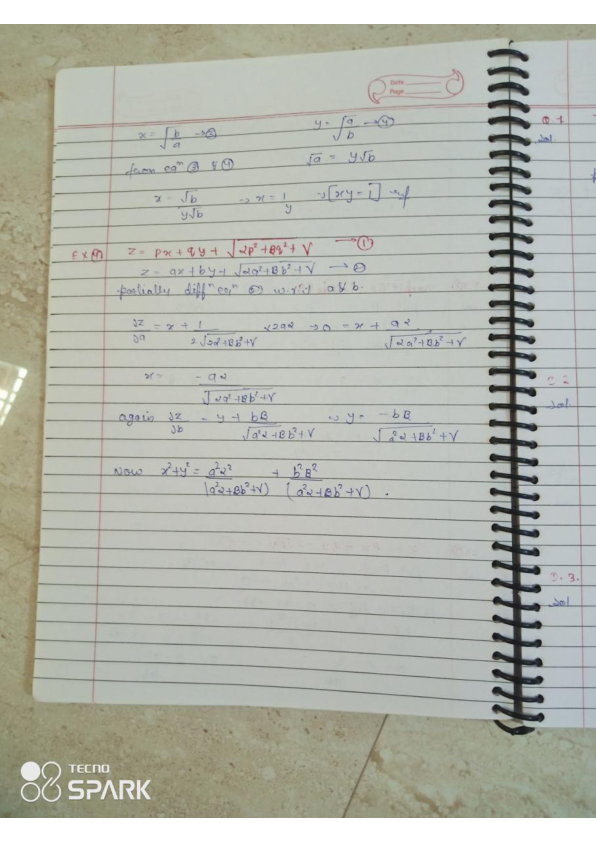 Date
Page
x = √b/a → ③ y = √a/b → ④
from eqⁿ ③ & ④ √a = y√b
x = √b/y√b → x = 1/y → [xy = 1]
Ex ④ z = px + qy + √αp² + βq² + γ → ①
z = ax + by + √αa² + βb² + γ → ②
partially diffⁿ eqⁿ ② w.r.t a & b.
δz/δa = x + 1/2√αa² + βb² + γ × 2aα → 0 = x + aα/√αa² + βb² + γ
x = -aα/√αa² + βb² + γ
again δz/δb = y + bβ/√a²α + βb² + γ ⇒ y = -bβ/√a²α + βb² + γ
Now x² + y² = a²α²/(a²α + βb² + γ) + b²β²/(a²α + βb² + γ) .
Q 1
Sol
Q 2
Sol
Q. 3.
Sol
TECNO
SPARK